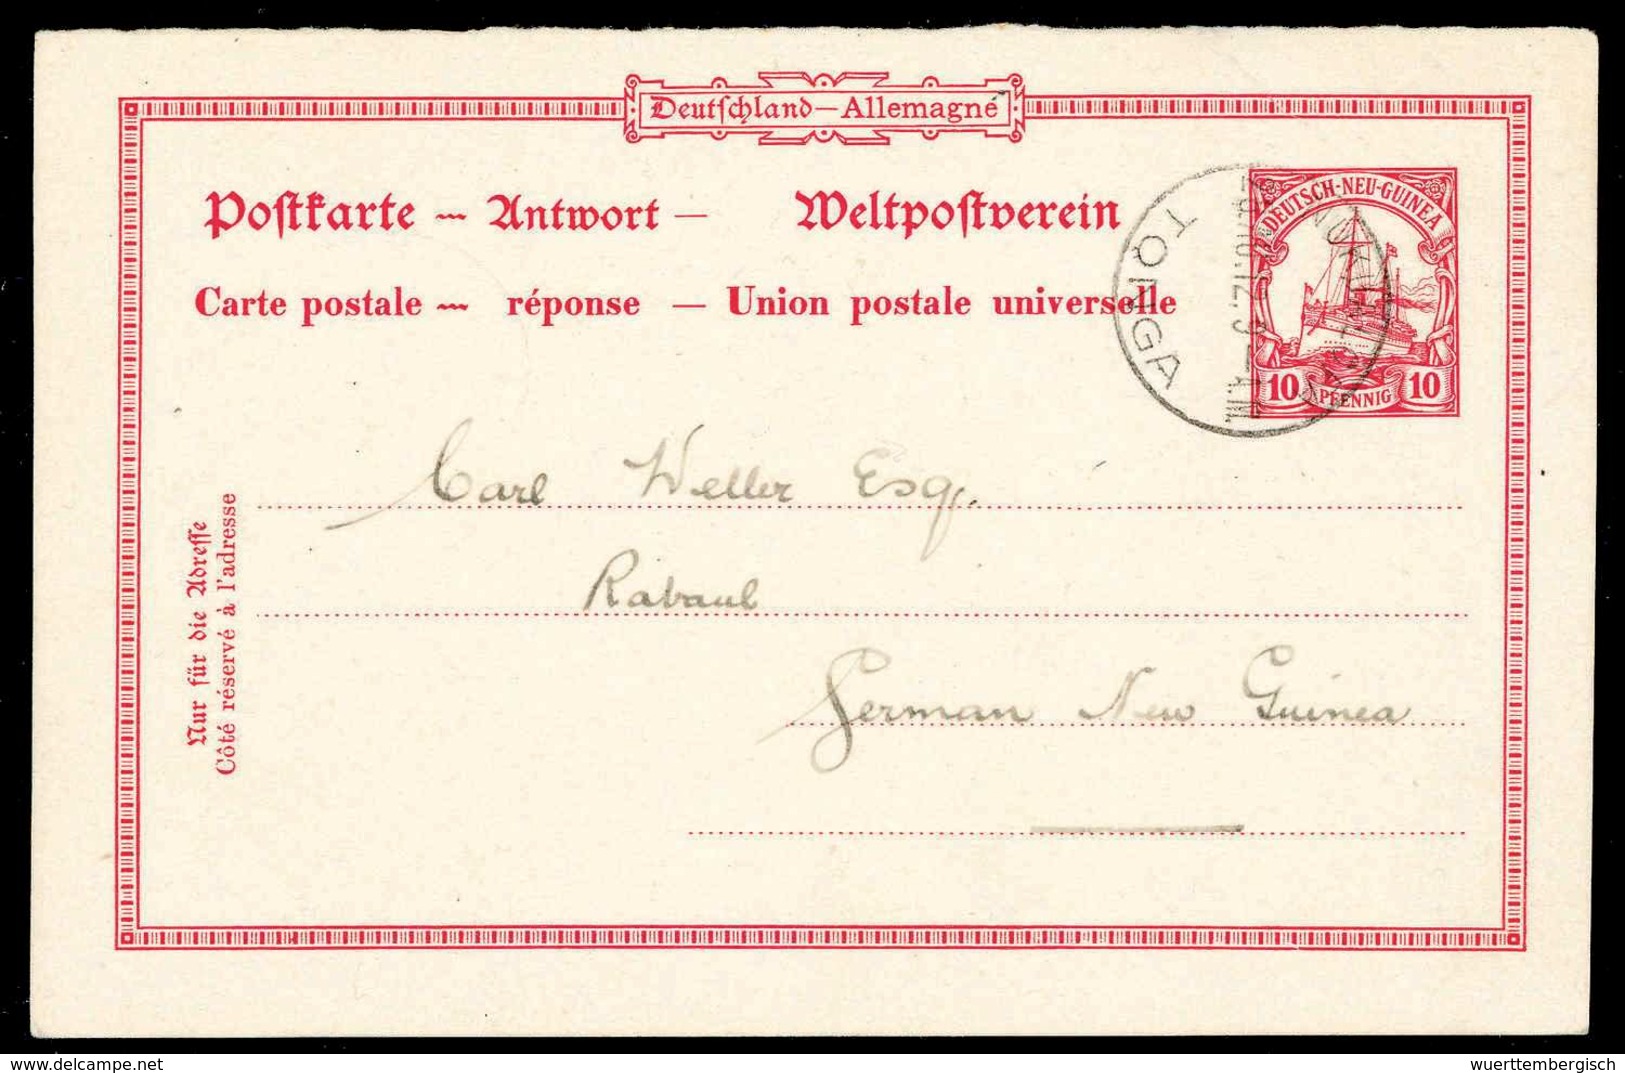 Deutschland—Allemagne
Postkarte — Antwort — Weltpostverein
Carte postale — réponse — Union postale universelle
DEUTSCH-NEU-GUINEA
10 PFENNIG 10
TONGA
Carl Weller Esq.
Rabaul
German New Guinea
Nur für die Adresse
Côté réservé à l'adresse
delcampe.net
wuerttembergisch